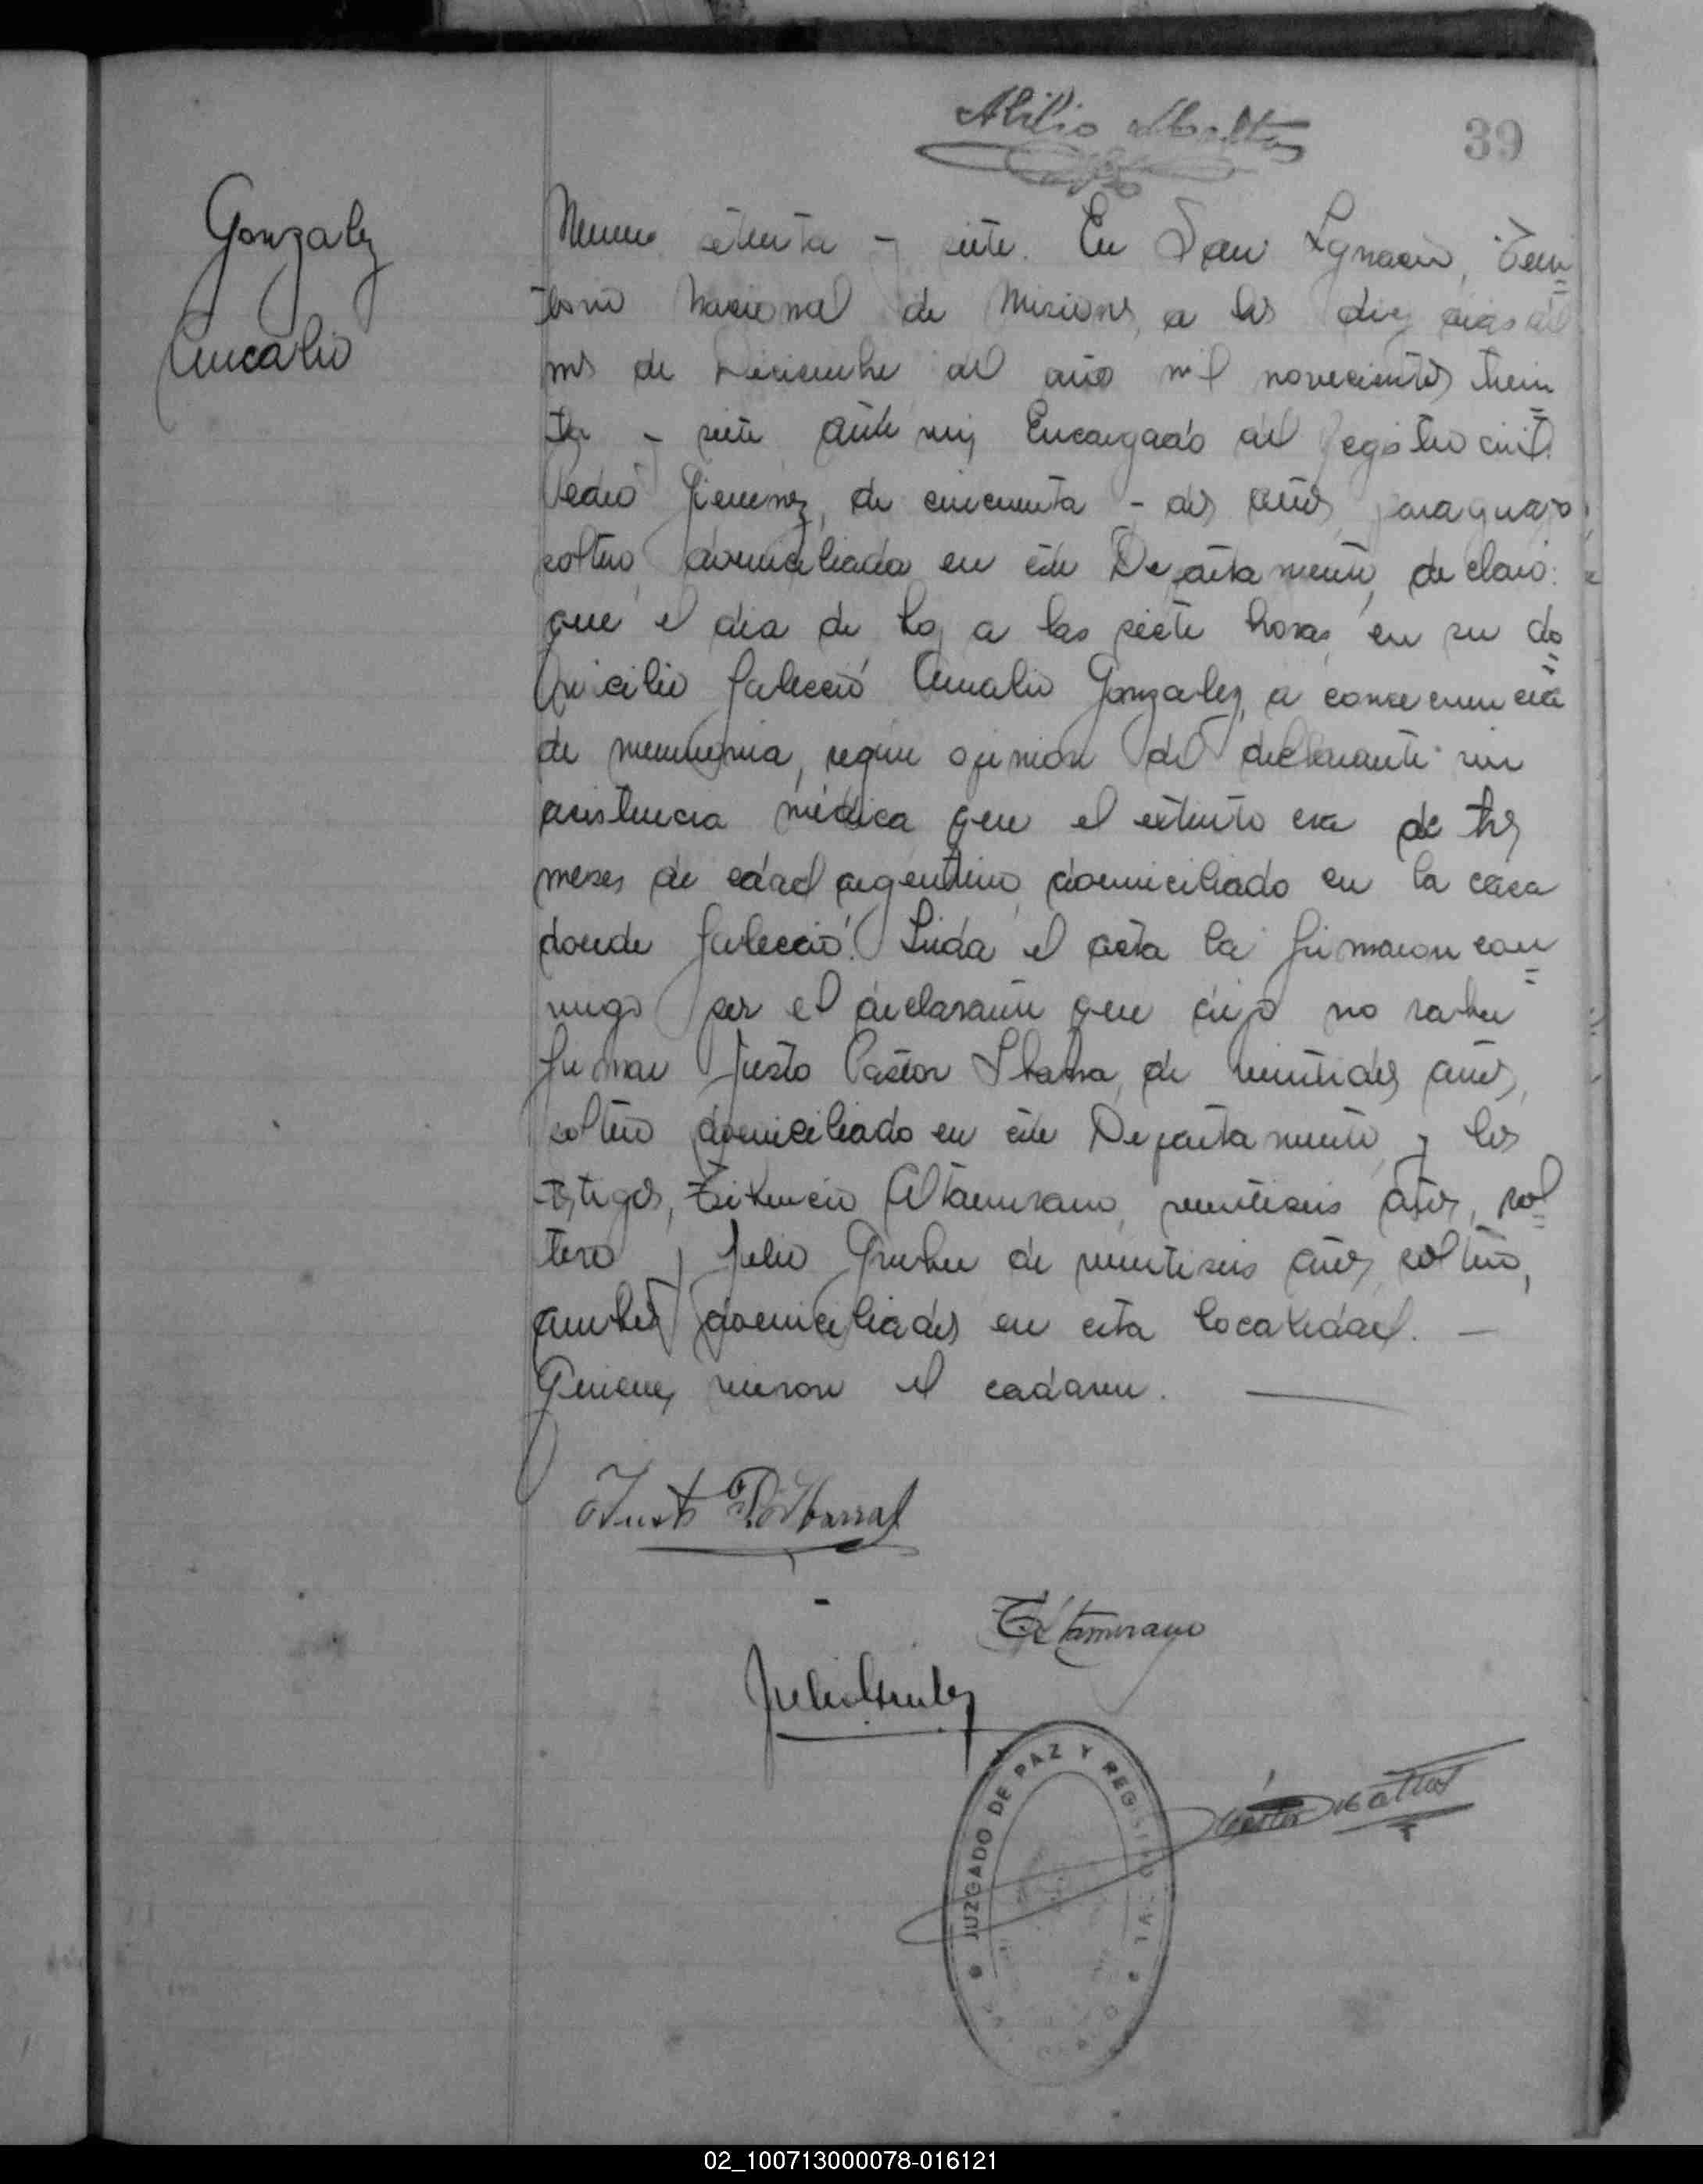 39
Gonzalez
Amalio
Numero setenta y siete. En San Ignacio, Terri
torio Nacional de Misiones, a los diez dias del
mes de Diciembre del año mil novecientos trein
ta y siete ante mi, Encargado del Registro civil
Pedro Gimenez, de cincuenta y dos años, paraguayo,
soltero, domiciliado en este Departamento, declaró:
que el dia de hoy a las siete horas, en su do
micilio falleció Amalio Gonzalez, a consecuencia
de neumonia, segun opinion del declarante sin
asistencia médica que el extinto era de tres
meses de edad argentino, domiciliado en la casa
donde falleció. Leida el acta la firmaron con
migo por el declarante que dijo no saber
firmar Justo Pastor Ibarra, de veintidos años,
soltero domiciliado en este Departamento, y los
testigos, Altamirano, veintiseis años, sol
tero y Julio de veintiseis años, soltero,
ambos domiciliados en esta localidad. —
Quienes vieron el cadaver. —
Justo P. Ibarra
Altamirano
Julio
JUZGADO DE PAZ Y REGISTRO CIVIL
02_100713000078-016121